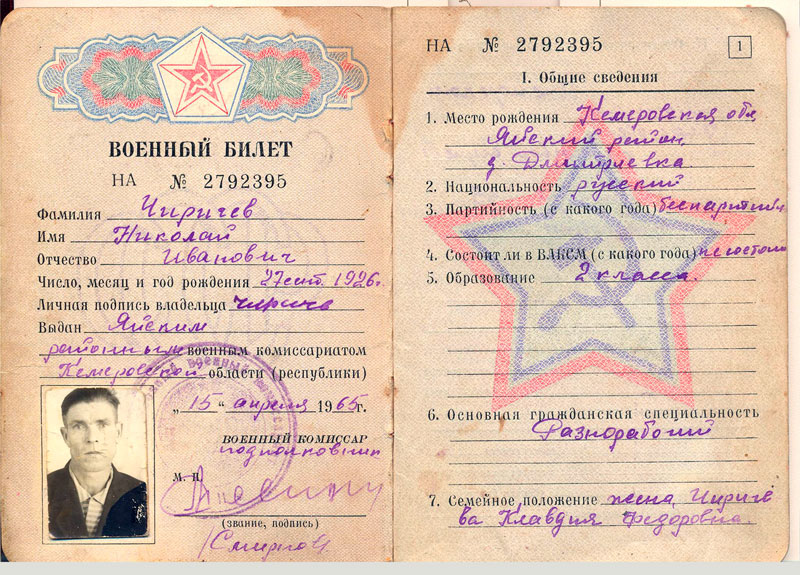 ВОЕННЫЙ БИЛЕТ
НА № 2792395
Фамилия Чиричев
Имя Николай
Отчество Иванович
Число, месяц и год рождения 27 сент. 1926г.
Личная подпись владельца Чириче
Выдан Яйским
районным военным комиссариатом
Кемеровской области (республики)
„15“ апреля 1965г.
ВОЕННЫЙ КОМИССАР
подполковник
М. П.
(звание, подпись)
/Смирнов/
НА № 2792395
1
I. Общие сведения
1. Место рождения Кемеровская обл
Яйский район
д. Дмитриевка.
2. Национальность русский
3. Партийность (с какого года) беспартийн
4. Состоит ли в ВЛКСМ (с какого года) не состоит
5. Образование 2 класса.
6. Основная гражданская специальность
Разнорабочий
7. Семейное положение жена, Чириче
ва Клавдия Федоровна.